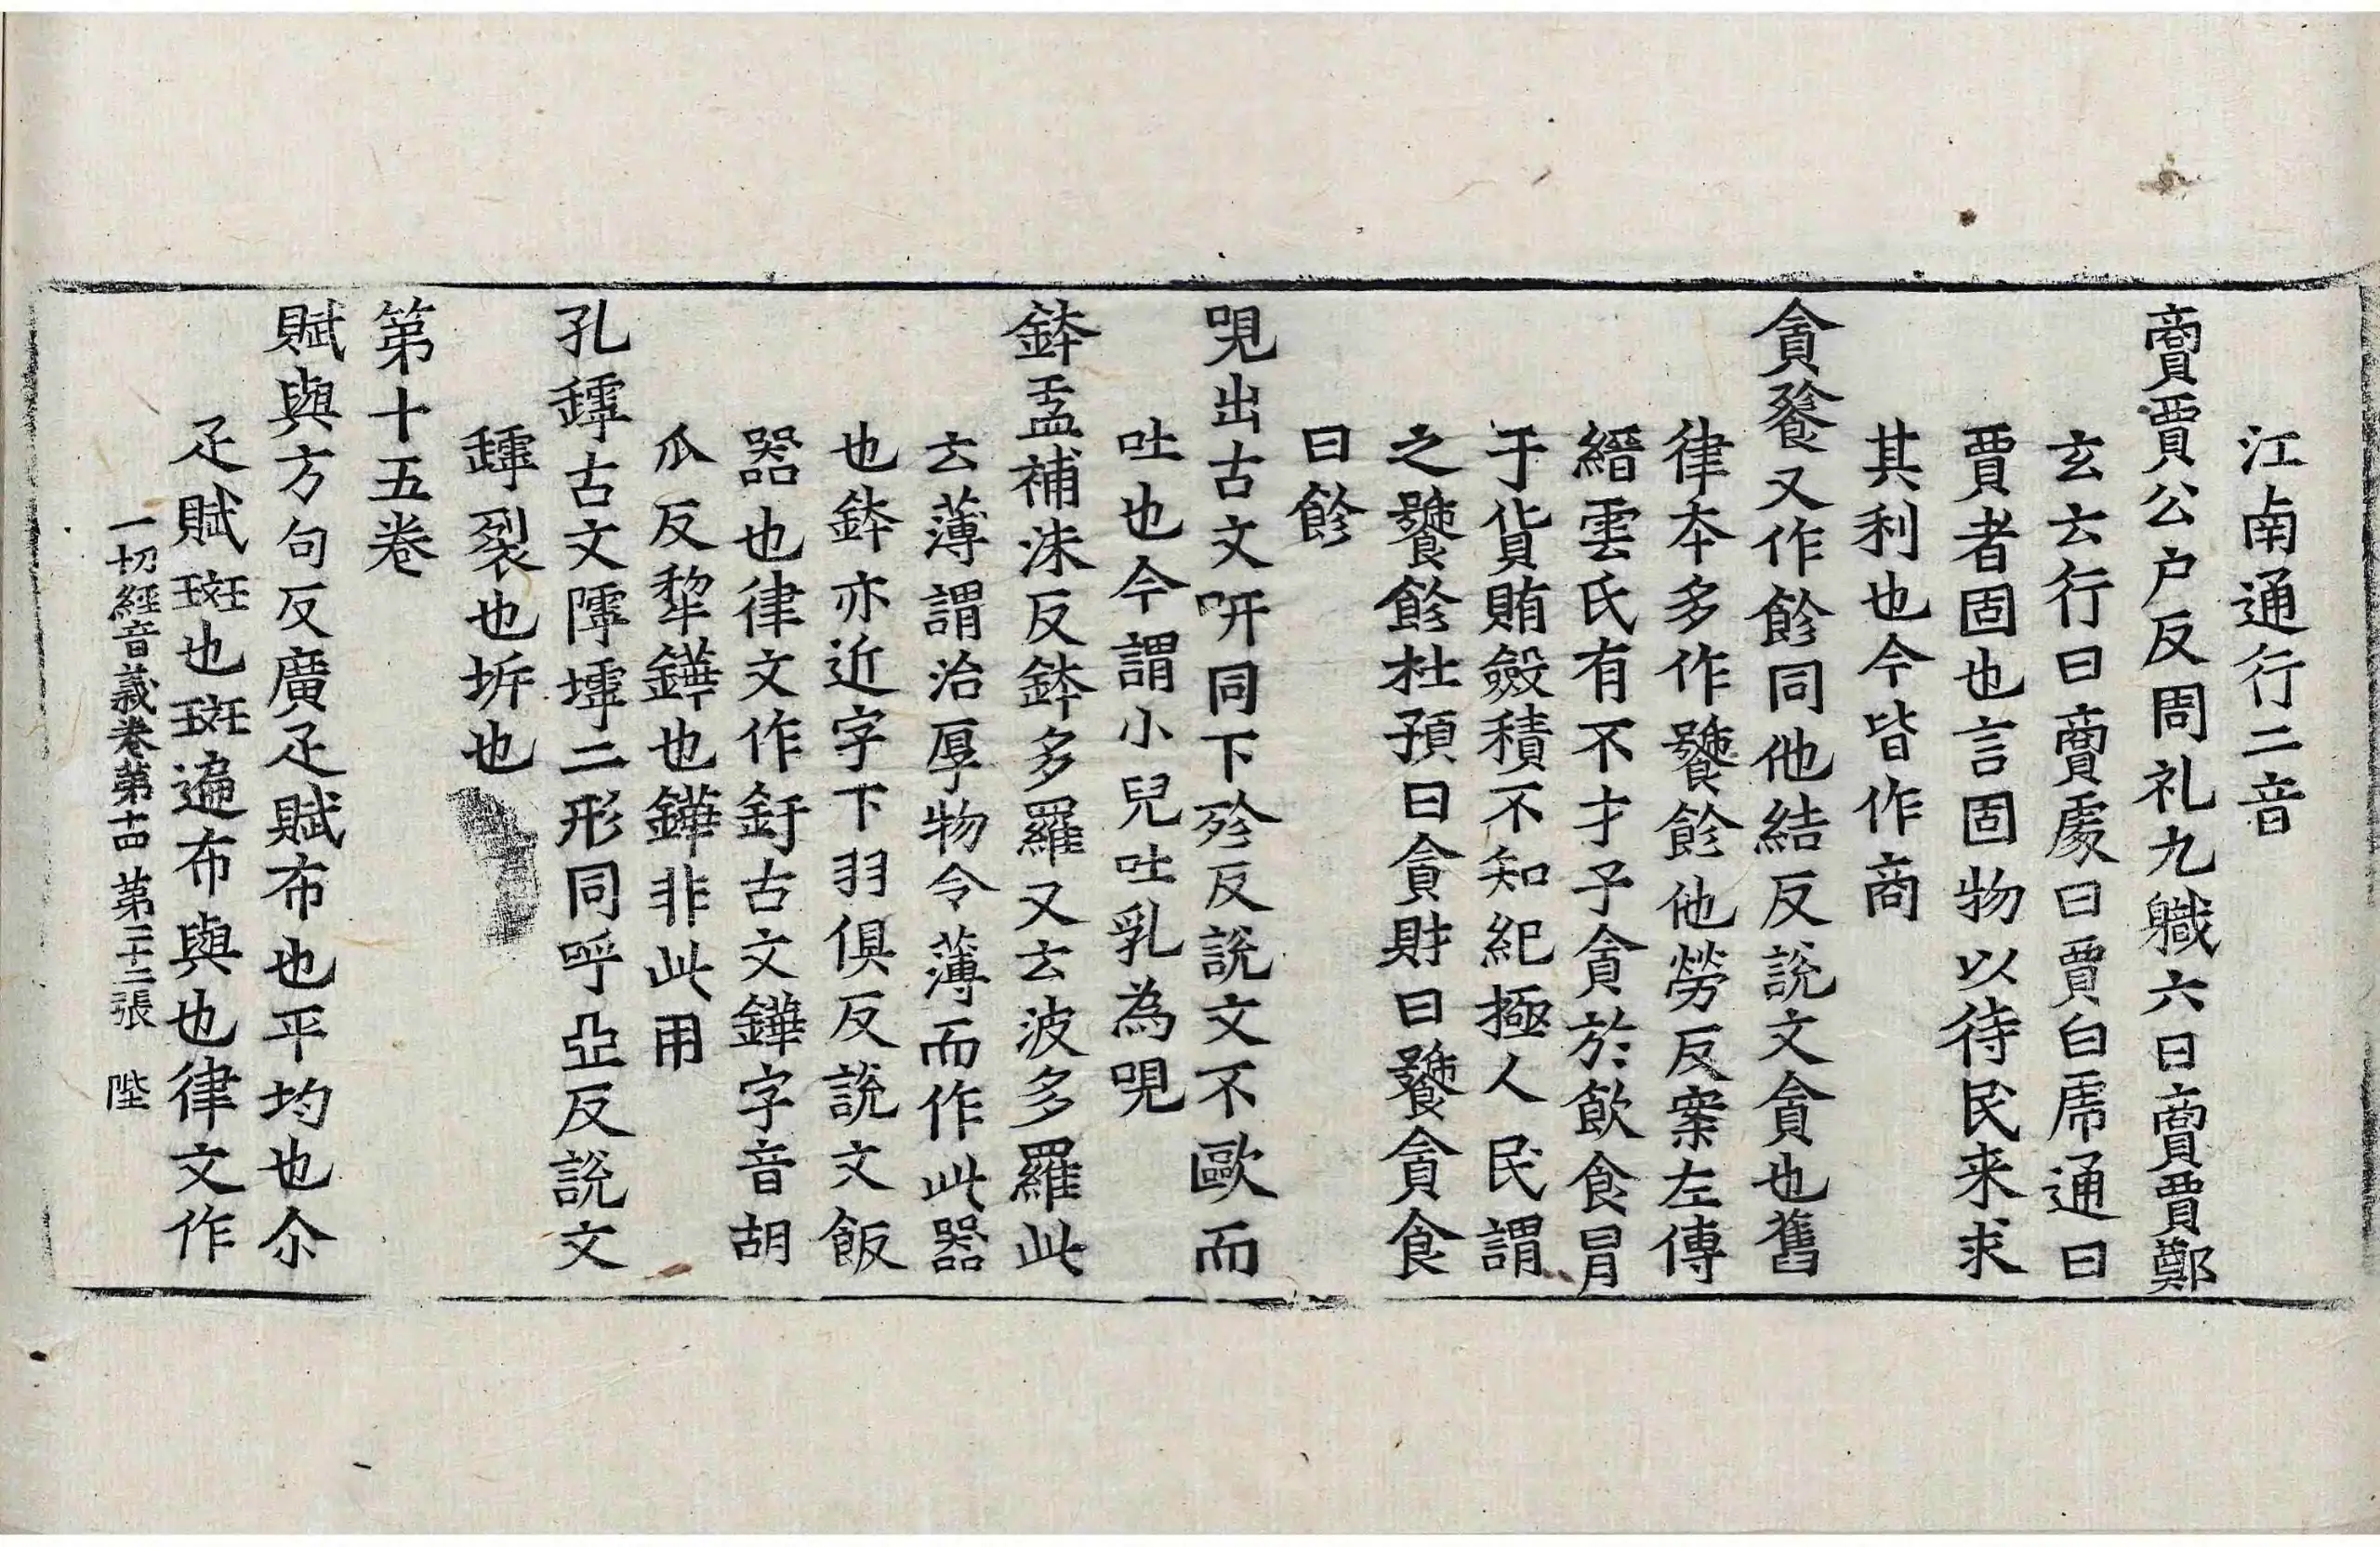 江南通行二音
賷賈公户反周礼九職六曰賷賈鄭
玄云行曰賷處曰賈白虎通曰
賈者固也言固物以待民来求
其利也今皆作商
貪飻又作飻同他結反說文貪也舊
律本多作饕飻他勞反案左傳
縉雲氏有不才子貪於飲食冒
于貨賄斂積不知紀極人民謂
之饕飻杜預曰貪財曰饕貪食
曰飻
哯出古文呏同下殄反說文不歐而
吐也今謂小兒吐乳為哯
鉢盂補沬反鉢多羅又云波多羅此
云薄謂治厚物令薄而作此器
也鉢亦近字下羽俱反說文飯
器也律文作釪古文鏵字音胡
瓜反犂鏵也鏵非此用
孔罅古文𨻲㙤二形同呼亞反說文
罅裂也坼也
第十五卷
賦與方句反廣疋賦布也平均也尒
疋賦班也班遍布與也律文作
一切經音義卷第十四 第三十二張 陛